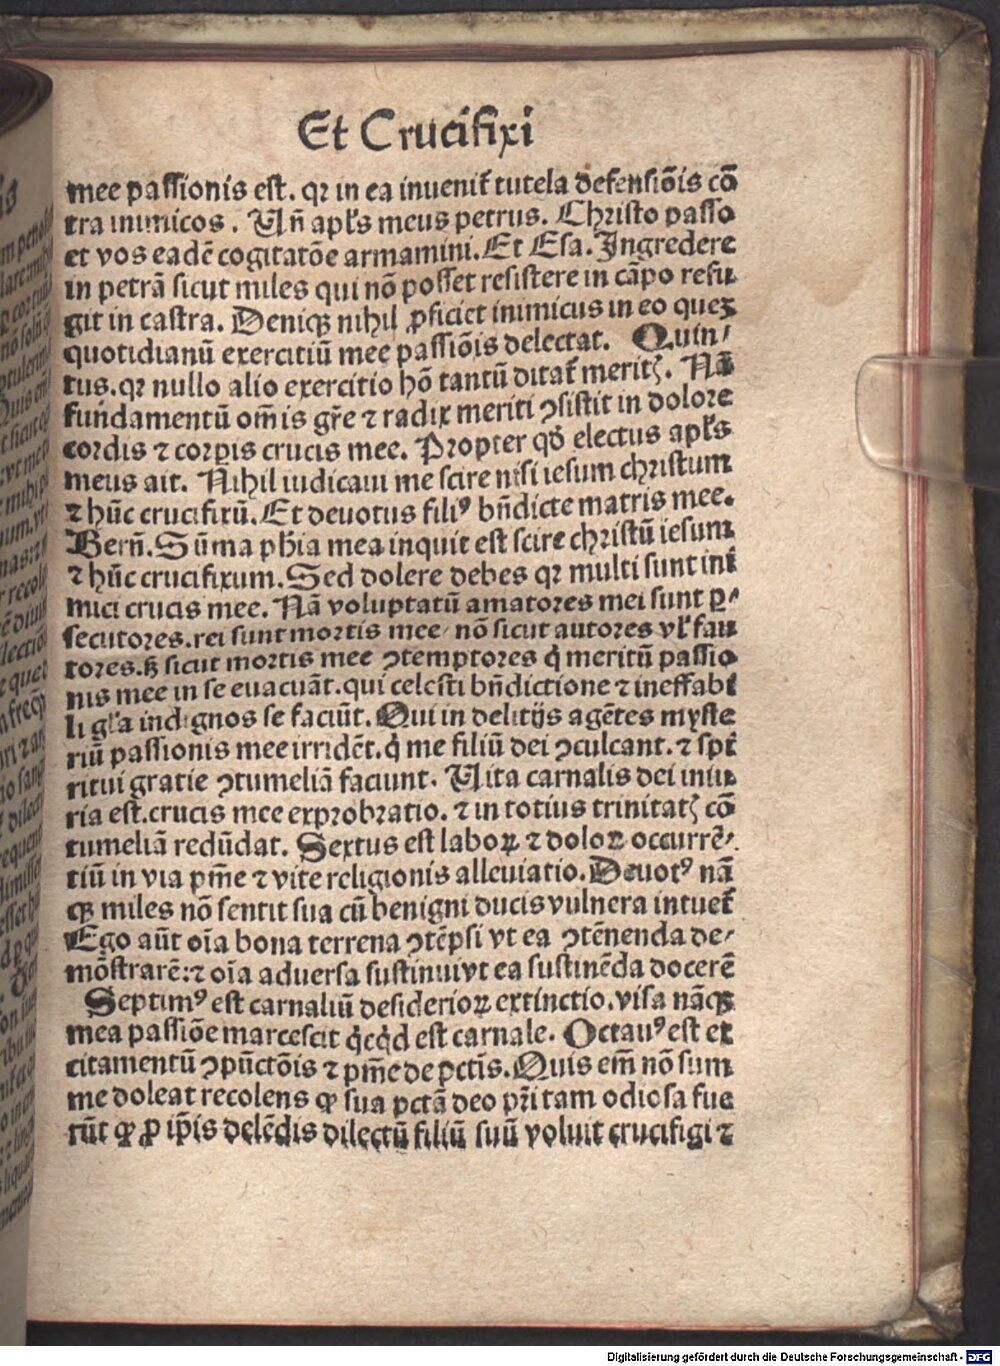 Et Crucifixi
mee passionis est. qꝛ in ea inuenit̉ tutela defensiōis cō
tra inimicos. Uñ apl̓s meus petrus. Christo passo
et vos eadē cogitatōe armamini. Et Esa. Ingredere
in petrā sicut miles qui nō posset resistere in cāpo refu
git in castra. Deniqꝫ nihil ꝓficiet inimicus in eo quez
quotidianū exercitiū mee passiōis delectat. Quin⸗
tus. qꝛ nullo alio exercitio hō tantū ditat̉ meritꝭ. Nā
fundamentū om̄is gr̄e ⁊ radix meriti ꝯsistit in dolore
cordis ⁊ corꝑis crucis mee. Propter qd̄ electus apl̓s
meus ait. Nihil iudicaui me scire nisi iesum christum
⁊ hūc crucifixū. Et deuotus filiꝰ bn̄dicte matris mee.
Bern̄. Sūma ph̄ia mea inquit est scire christū iesum
⁊ hūc crucifixum. Sed dolere debes qꝛ multi sunt ini
mici crucis mee. Nā voluptatū amatores mei sunt ꝑ⸗
secutores. rei sunt mortis mee / nō sicut autores vl̓ fau
tores. sꝫ sicut mortis mee ꝯtemptores q̇ meritū passio
nis mee in se euacuāt. qui celesti bn̄dictione ⁊ ineffabi
li gl̓a indignos se faciūt. Qui in delitijs agētes myste
riū passionis mee irridēt. q̇ me filiū dei ꝯculcant. ⁊ spi
ritui gratie ꝯtumeliā faciunt. Uita carnalis dei iniu
ria est. crucis mee exprobratio. ⁊ in totius trinitatꝭ cō
tumeliā redūdat. Sextus est laboꝝ ⁊ doloꝝ occurrē⸗
tiū in via pm̄e ⁊ vite religionis alleuiatio. Deuotꝰ nā
qꝫ miles nō sentit sua cū benigni ducis vulnera intuet̉
Ego aūt oīa bona terrena ꝯtēpsi vt ea ꝯtēnenda de⸗
mōstrarē: ⁊ oīa aduersa sustinui vt ea sustinēda docerē
Septimꝰ est carnaliū desiderioꝝ extinctio. visa nāqꝫ
mea passiōe marcescit q̇cq̇d est carnale. Octauꝰ est ex
citamentū ꝯpūctōis ⁊ pm̄e de pctīs. Quis em̄ nō sum
me doleat recolens ꝙ sua pctā deo pr̄i tam odiosa fue
rūt ꝙ ꝓ ip̄is delēdis dilectū filiū suū voluit crucifigi ⁊
Digitalisierung gefördert durch die Deutsche Forschungsgemeinschaft - DFG